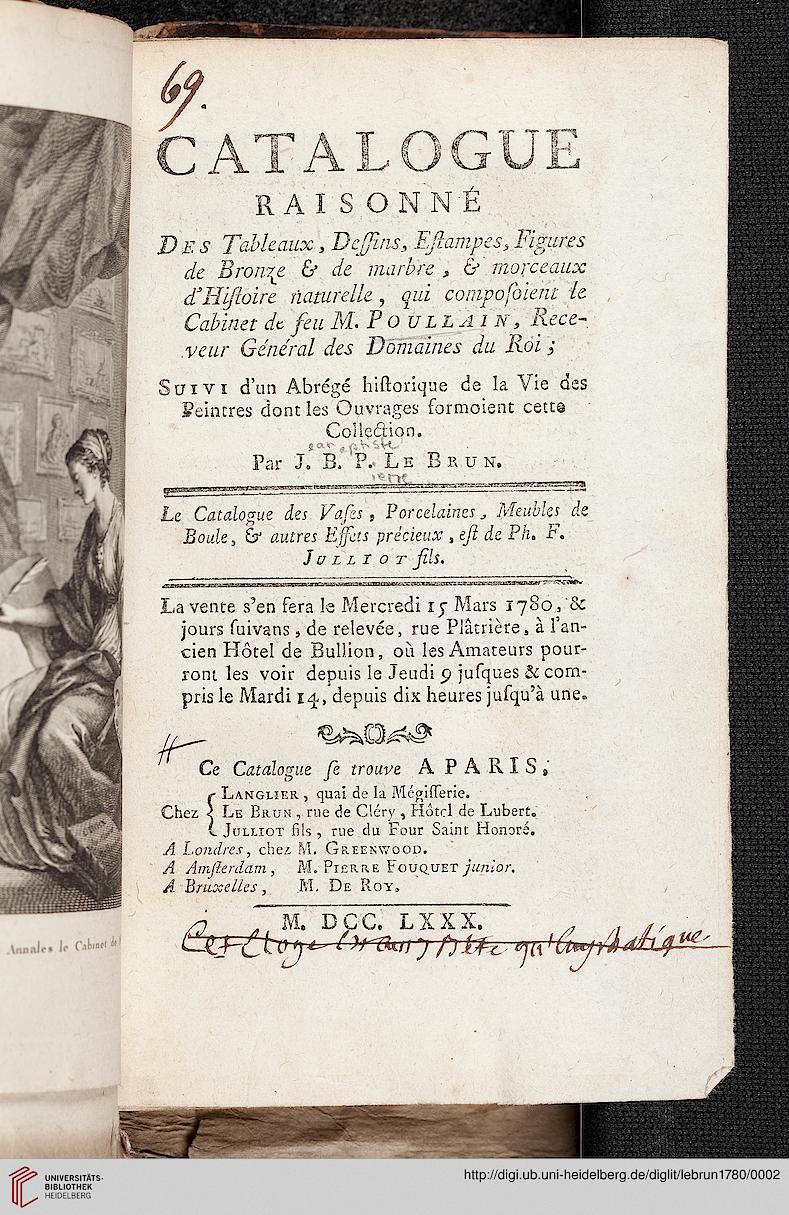 69.
CATALOGUE
RAISONNÉ
DES Tableaux, Deſſins, Eſtampes, Figures
de Bronze & de marbre, & morceaux
d'Hiſtoire naturelle, qui compoſoient le
Cabinet de feu M. POULLAIN, Rece-
veur Général des Domaines du Roi ;
SUIVI d'un Abrégé hiſtorique de la Vie des
Peintres dont les Ouvrages formoient cette
Collection.
ean aptiste
Par J. B. P. LE BRUN.
ierre
Le Catalogue des Vaſes, Porcelaines, Meubles de
Boule, & autres Effets précieux, eſt de Ph. F.
JULLIOT fils.
La vente s'en fera le Mercredi 15 Mars 1780, &
jours ſuivans, de relevée, rue Plâtrière, à l'an-
cien Hôtel de Bullion, où les Amateurs pour-
ront les voir depuis le Jeudi 9 juſques & com-
pris le Mardi 14, depuis dix heures juſqu'à une.
Ce Catalogue ſe trouve A PARIS,
Chez
LANGLIER, quai de la Mégiſſerie.
LE BRUN, rue de Cléry, Hôtel de Lubert.
JULLIOT fils, rue du Four Saint Honoré.
A Londres, chez M. GREENWOOD.
A Amſterdam, M. PIERRE FOUQUET junior.
A Bruxelles, M. DE ROY.
M. DCC. LXXX.
Cet Eloge qu'Emphatique.
Annales le Cabinet de
UNIVERSITÄTS-
BIBLIOTHEK
HEIDELBERG
http://digi.ub.uni-heidelberg.de/diglit/lebrun1780/0002